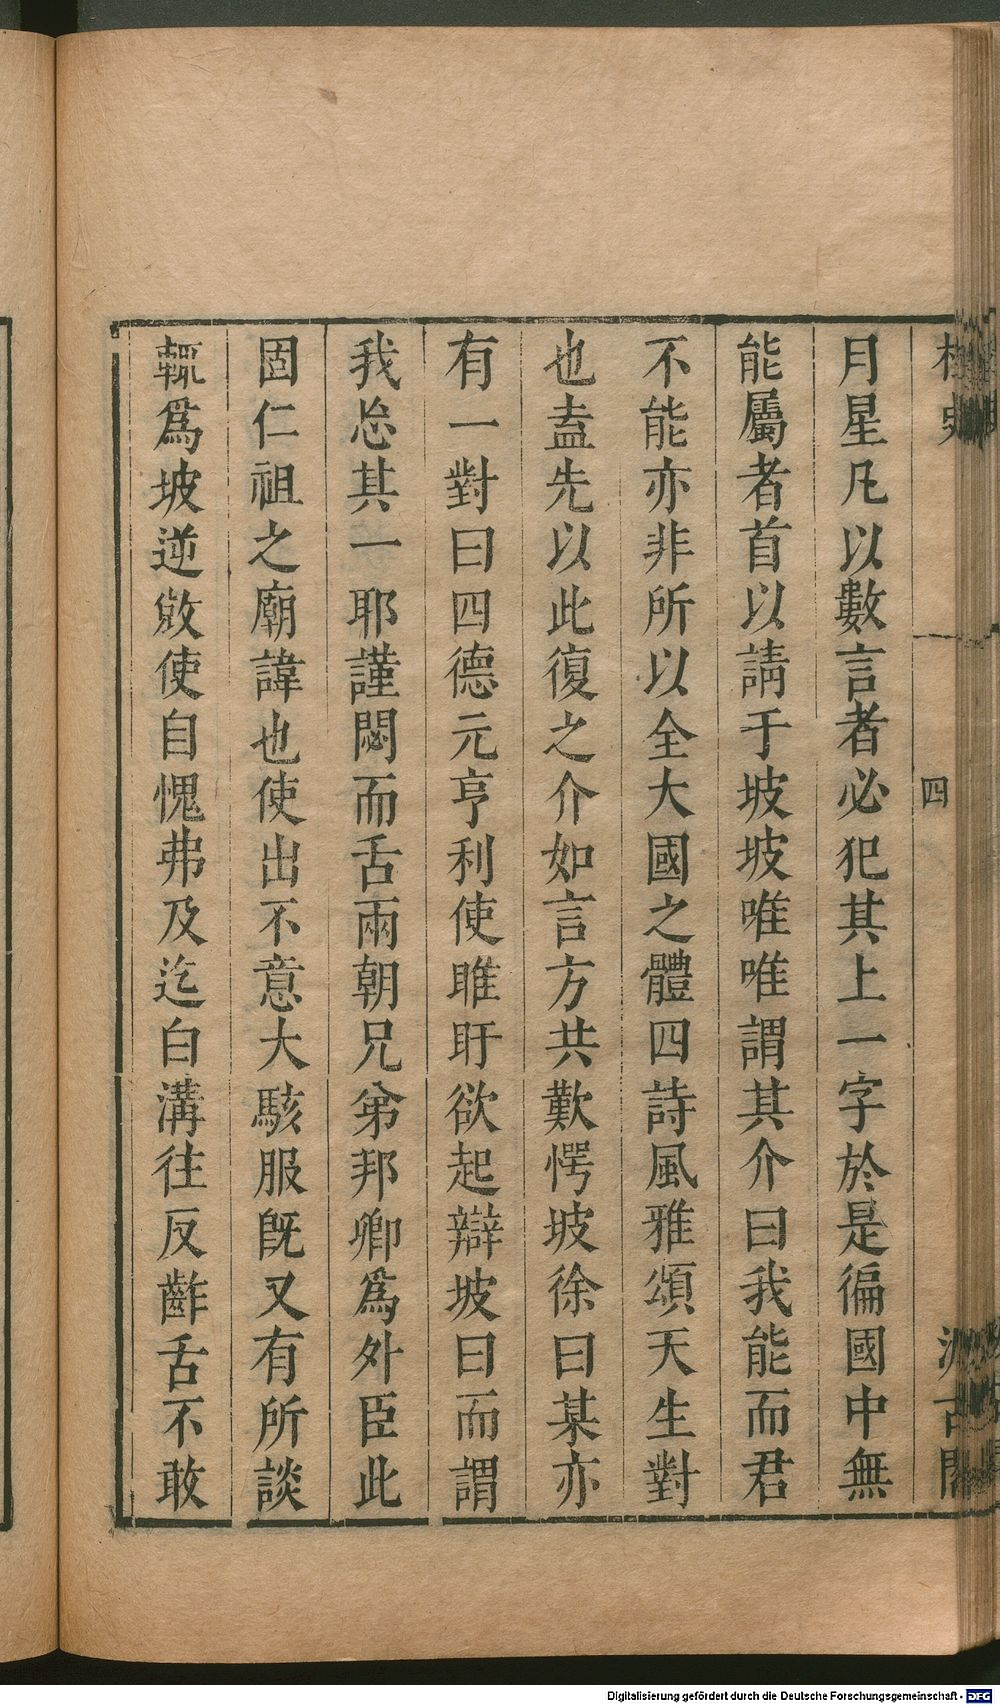 史
四
古
月星凡以數言者必犯其上一字於是徧國中無
能屬者首以請于坡坡唯唯謂其介曰我能而君
不能亦非所以全大國之體四詩風雅頌天生對
也盍先以此復之介如言方共歎愕坡徐曰某亦
有一對曰四德元亨利使睢盱欲起辯坡曰而謂
我㤀其一耶謹閟而舌兩朝兄弟邦卿爲外臣此
固仁祖之廟諱也使出不意大駭服旣又有所談
輒爲坡逆敓使自愧弗及迄白溝往反齰舌不敢
Digitalisierung gefördert durch die Deutsche Forschungsgemeinschaft - DFG